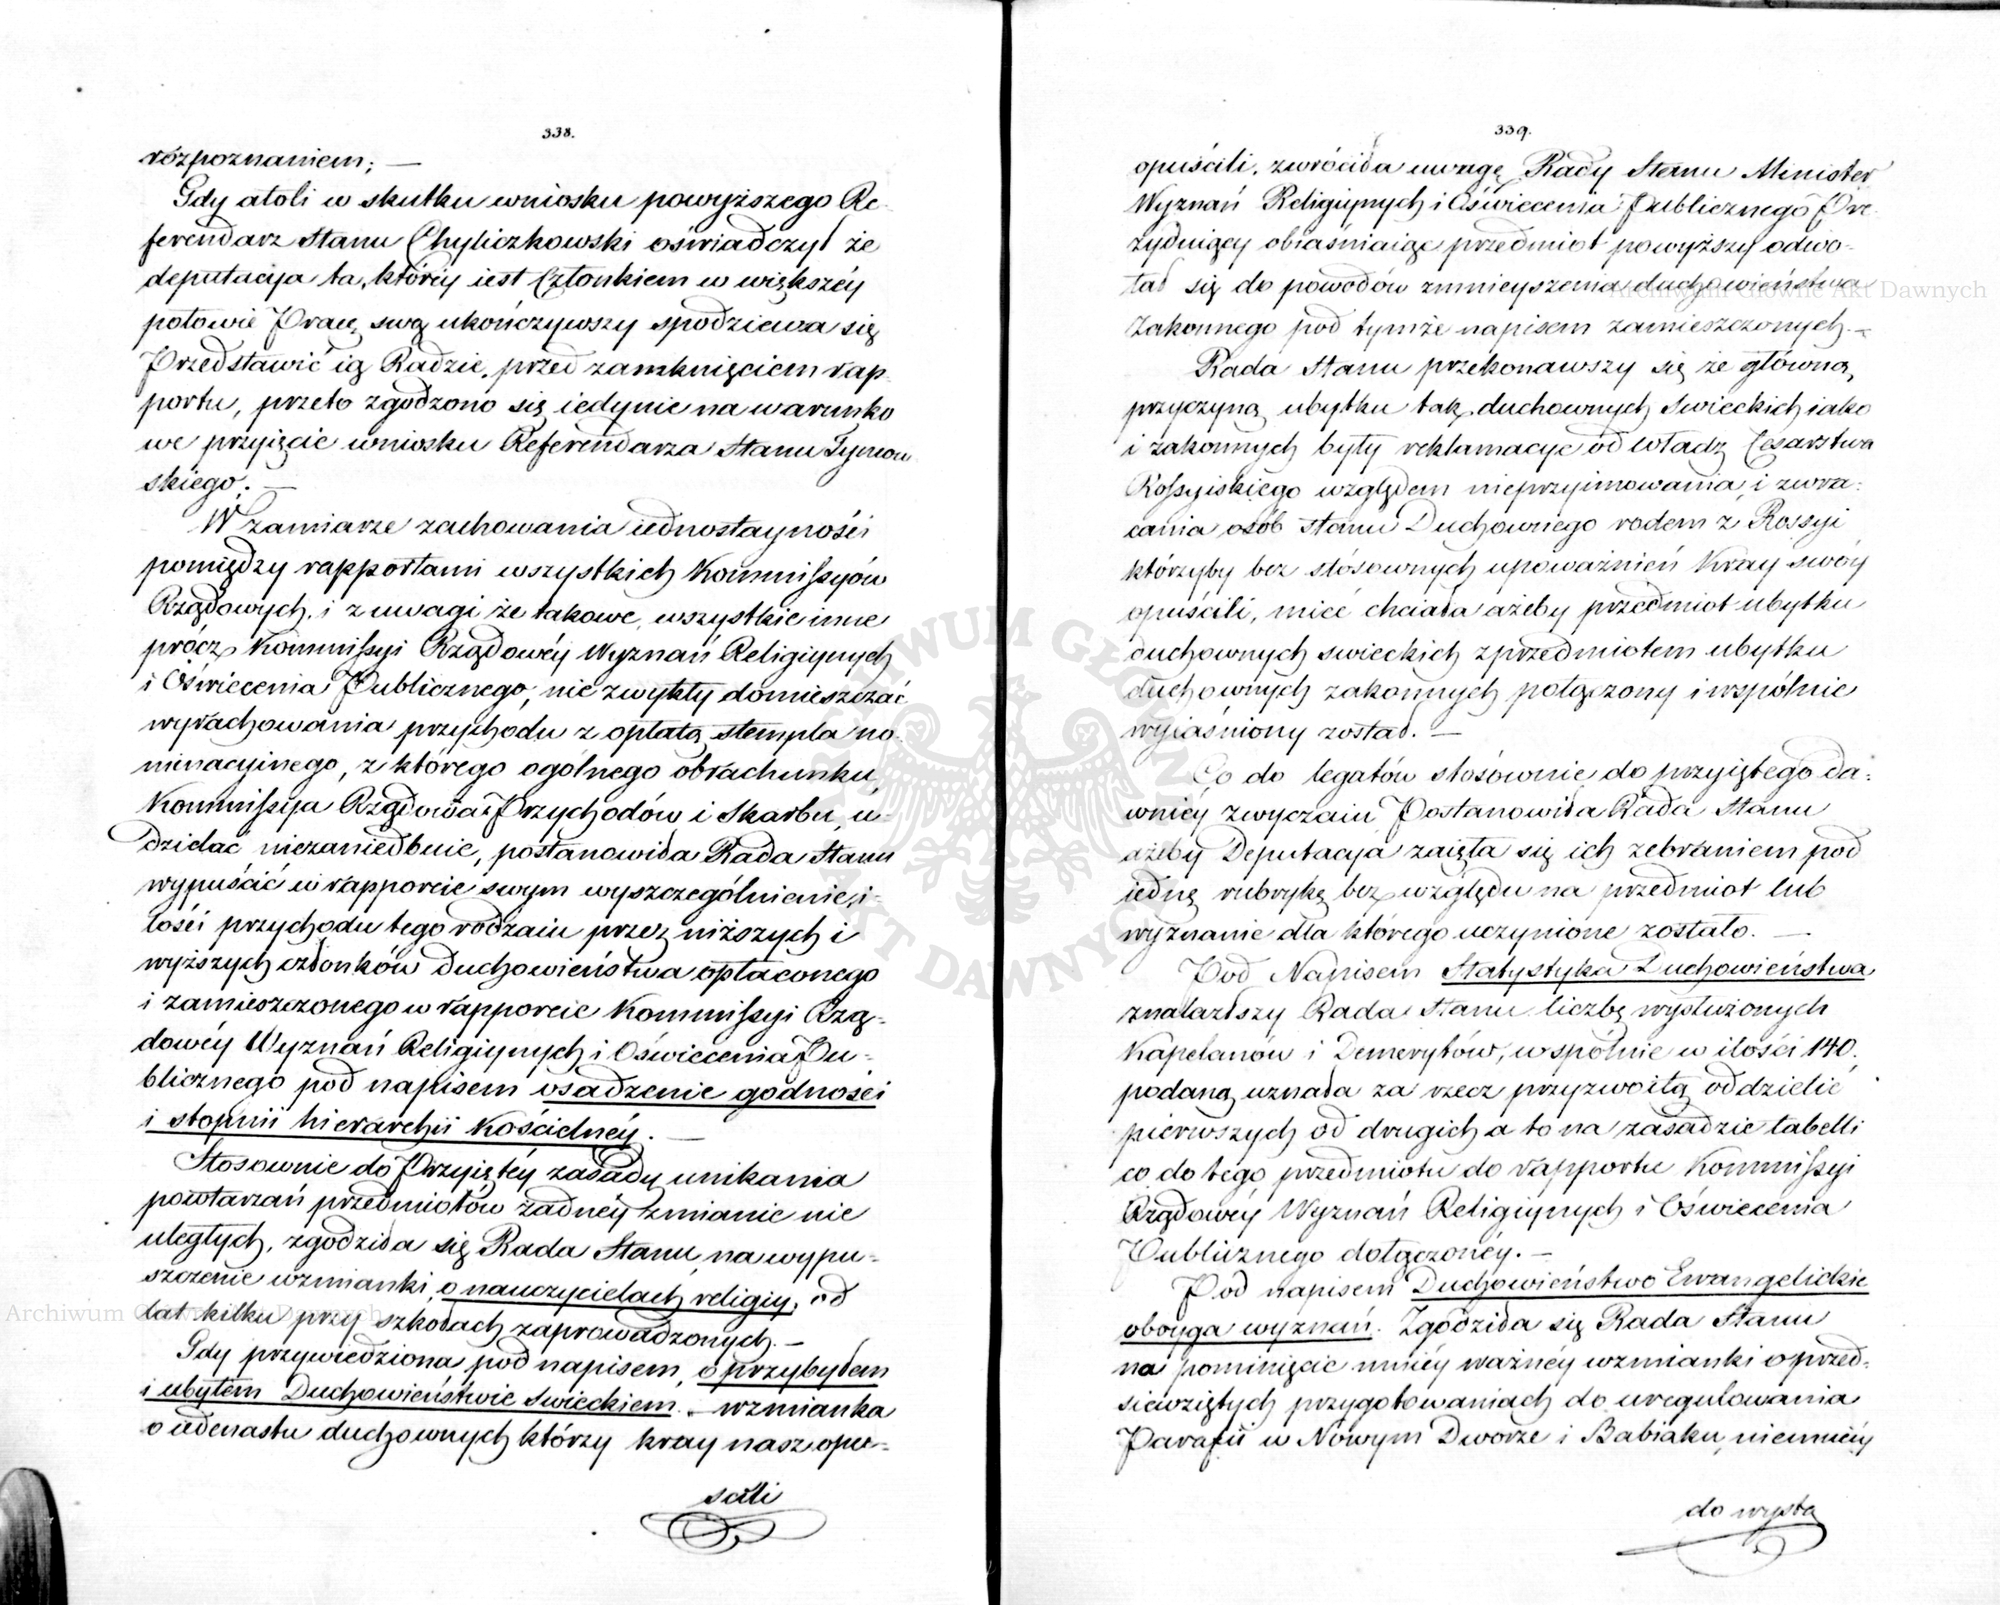 338.
rozpoznaniem; —
Gdy atoli w skutku wniosku powyższego Re-
ferendarz Stanu Chyliczkowski oświadczył że
deputacyja ta, któréy iest Członkiem w większéy
połowie Pracę swą ukończywszy spodziewa się
Przedstawić ią Radzie, przed zamknięciem rap-
portu, przeto zgodzono się iedynie na warunko
we przyięcie wniosku Referendarza Stanu Tymow
skiego. —
W zamiarze zachowania iednostayności
pomiędzy rapportami wszystkich Kommissyów
Rządowych, i z uwagi że takowe, wszystkie inne
prócz Kommissyi Rządowéy Wyznań Religiynych
i Oświecenia Publicznego, nie zwykły domieszczać
wyrachowania przychodu z opłatą stempla no-
minacyinego, z którego ogólnego obrachunku,
Kommissyja Rządowa Przychodów i Skarbu, u-
dzielać niezaniedbuie, postanowiła Rada Stanu
wypuścić w rapporcie swym wyszczególnienie, i-
lości przychodu tego rodzaiu przez niższych i
wyższych członków duchowieństwa opłaconego
i zamieszczonego w rapporcie Kommissyi Rzą-
dowéy Wyznań Religiynych i Oświecenia Pu-
blicznego pod napisem osadzenie godności
i stopnii hierarchii Kościelnéy. —
Stosownie do Przyiętéy zasady unikania
powtarzań przedmiotów żadnéy zmianie nie
uległych, zgodziła się Rada Stanu na wypu-
szczenie wzmianki, o nauczycielach religiy, od
lat kilku przy szkołach zaprowadzonych. —
Gdy przywiedziona pod napisem, o przybyłem
i ubyłem Duchowieństwie Swieckiem. wzmianka
o iedenastu duchownych którzy kray nasz opu-
scili
339.
opuścili, zwróciła uwagę Rady Stanu Minister
Wyznań Religiynych i Oświecenia Publicznego Pre-
zyduiący obiaśniaiąc przedmiot powyższy odwo-
łał się do powodów zmnieyszenia duchowieństwa
Zakonnego pod tymże napisem zamieszczonych. —
Rada Stanu przekonawszy się że główną
przyczyną ubytku tak duchownych Swieckich iako
i zakonnych były reklamacye od Władz Cesarstwa
Rossyiskiego względem nieprzyimowania i zwra-
cania osób stanu Duchownego rodem z Rossyi
którzyby bez stósownych upoważnień Kray swóy
opuścili, mieć chciała ażeby przedmiot ubytku
duchownych swieckich z przedmiotem ubytku
duchownych zakonnych połączony i wspólnie
wyiaśniony został. —
Co do legatów stosównie do przyiętego da-
wniey zwyczaiu Postanowiła Rada Stanu
ażeby Deputacyja zaięła się ich zebraniem pod
iednę rubrykę bez względu na przedmiot lub
wyznanie dla którego uczynione zostało. —
Pod Napisem Statystyka Duchowieństwa
znalazłszy Rada Stanu liczbę wysłużonych
Kapelanów i Demerytów, wspólnie w ilości 140.
podaną uznała za rzecz przyzwoitą oddzielić
pierwszych od drugich a to na zasadzie tabelli
co do tego przedmiotu do rapportu Kommissyi
Rządowéy Wyznań Religiynych i Oświecenia
Publicznego dołączonéy. —
Pod napisem Duchowieństwo Ewangelickie
oboyga wyznań. Zgodziła się Rada Stanu
na pominięcie mniéy ważnéy wzmianki o przed-
siewziętych przygotowaniach do uregulowania
Parafii w Nowym Dworze i Babiaku, niemniéy
do wysła
Archiwum Główne Akt Dawnych
Archiwum Główne Akt Dawnych
ARCHIWUM GŁÓWNE AKT DAWNYCH